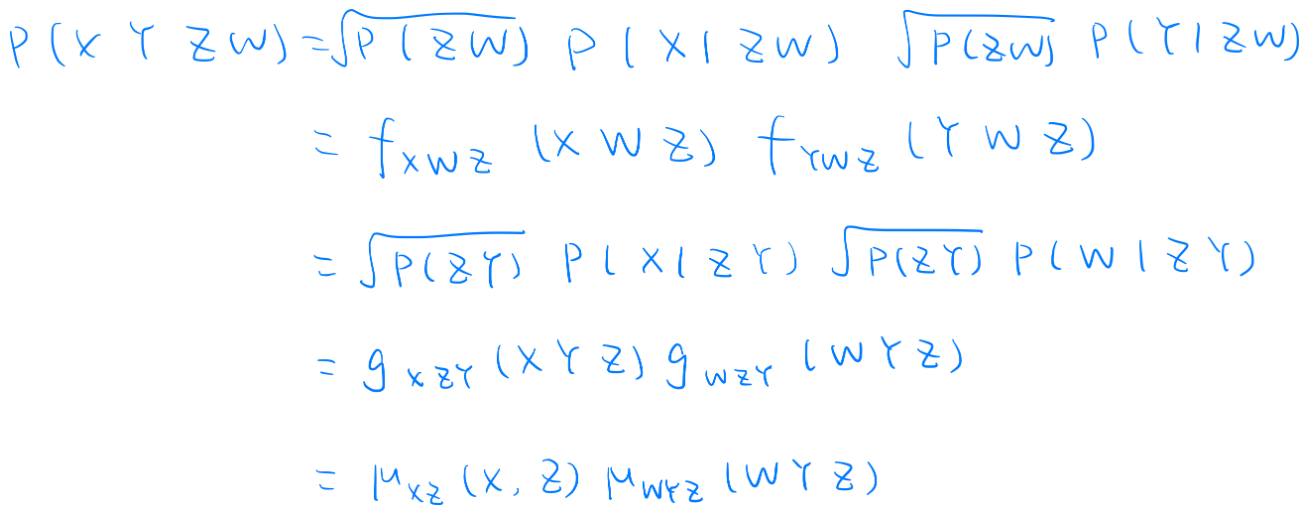 P(X Y Z W) = √P(ZW) P(X|ZW) √P(ZW) P(Y|ZW)
= f_{XWZ} (X W Z) f_{YWZ} (Y W Z)
= √P(ZY) P(X|ZY) √P(ZY) P(W|ZY)
= g_{XZY} (X Y Z) g_{WZY} (W Y Z)
= μ_{XZ} (X, Z) μ_{WYZ} (W Y Z)